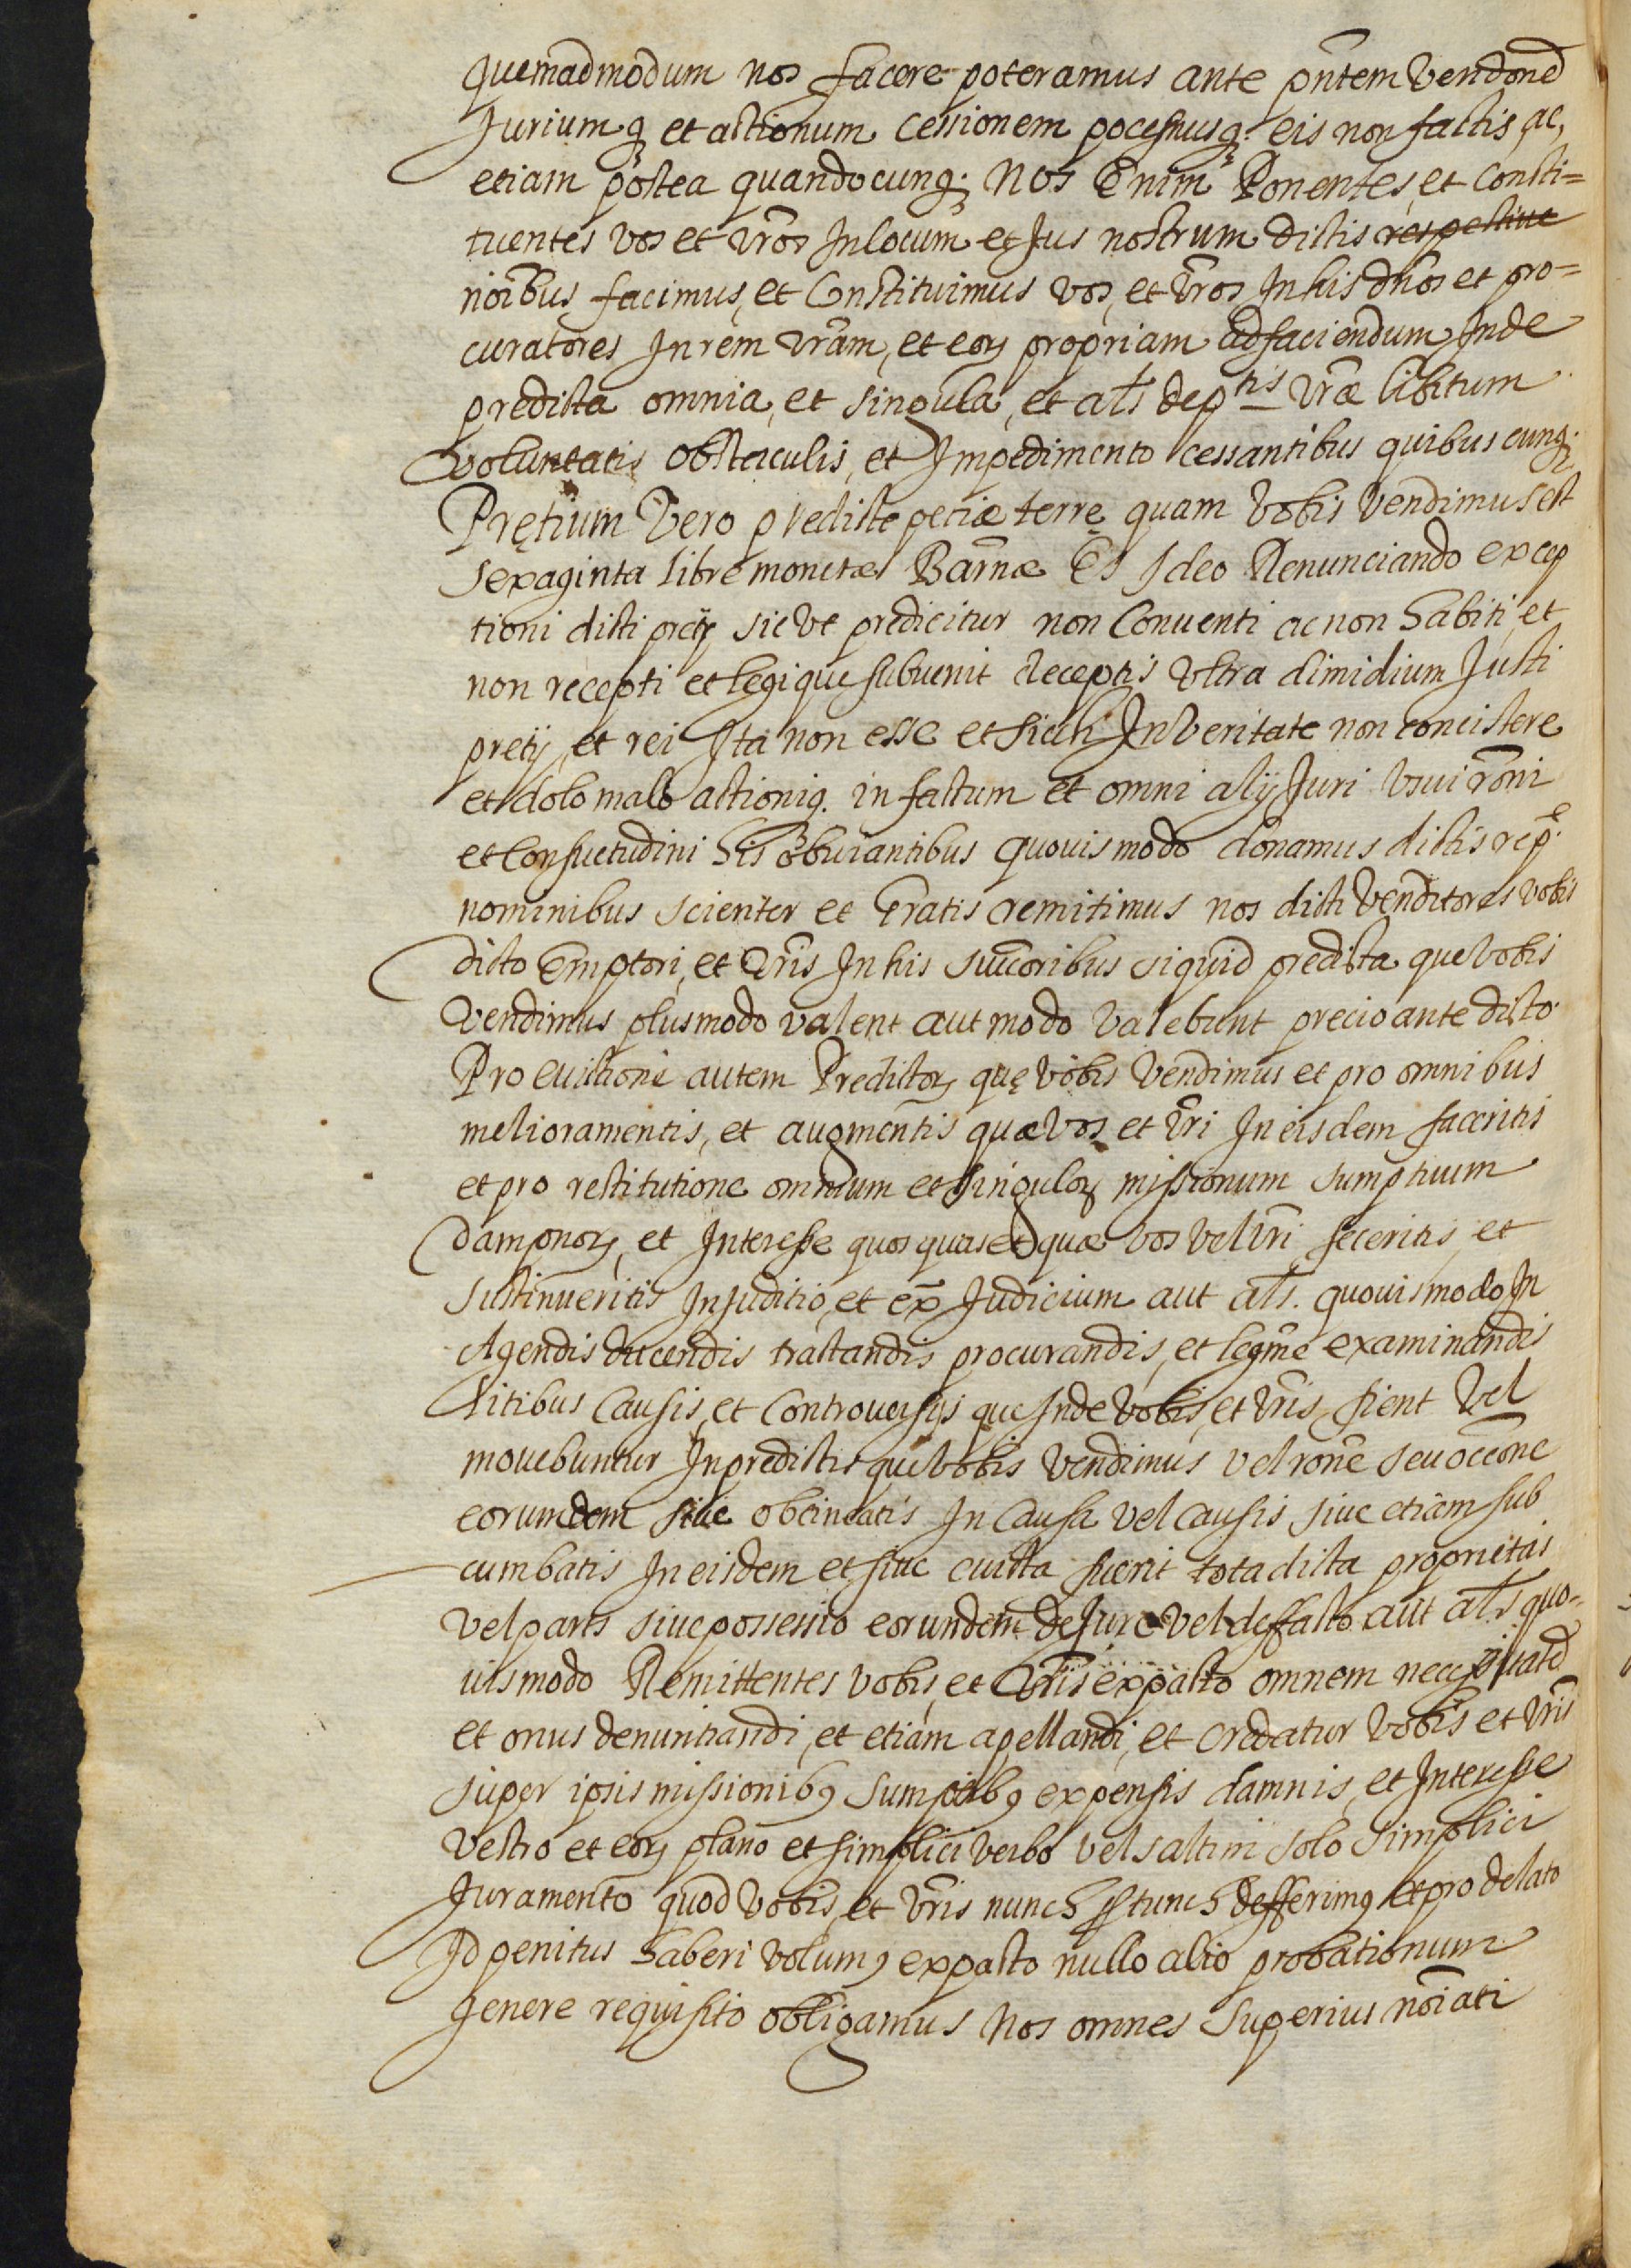 quemadmodum nos facere poteramus ante pñtem vendoned
Juriumq et actionum cessionem pocesmusq. eis non factis ac,
etiam postea quandocunq; Nos Enim Ponentes, et consti=
tuentes vos et vr̃os In locum et Jus nostrum dictis respective
noĩbus facimus, et Constituimus vos, et vr̃os In his dños et pro=
curatores In rem vr̃am, et eorȝ propriam ad faciendum, Inde
predicta omnia, et singula, et als̃ dep tis vr̃æ libitum
voluntatis obstaculis, et Impedimento cessantibus quibuscunq;
Prętium Vero predicte peciæ terrę quam vobis vendimus est
sexaginta libre monetæ Barñæ Et Ideo Renunciando excep
tioni dicti precij sic ut predicitur non Conventi ac non habiti, et
non recepti et legi que subvenit deceptis ultra dimidium Justi
pretij, et rei Ita non esse et sicuti In Veritate non concistere
et dolo malo actioniq. in factum et omni alij Juri Usui rõni
et Consuetudini his obviantibus quovis modo donamus dictis rep.e
nominibus scienter et Gratis remitimus nos dicti venditores vobis
dicto Emptori, et vr̃is In his succoribus siquid predicta que vobis
vendimus plusmodo valent aut modo valebunt precio ante dicto
Pro evictione autem Predictorȝ quę vobis vendimus et pro omnibus
melioramentis, et augmentis quæ vos et vr̃i In eisdem faceritis
et pro restitutione omnium et singulorȝ missionum sumptuum
damponorȝ, et Interesse quos quas et quæ vos vel vr̃i feceritis et
sustinueritis In juditio, et ex̃ Judicium aut als̃. quovismodo In
Agendis ducendis tractandis procurandis, et legm̃e examinandis
litibus Causis, et Controversijs que Inde vobis, et vr̃is fient vel
movebuntur In predictis que vobis vendimus vel rõne seu occõne
eorumdem sive obtineatis In causa vel causis sive etiam sub
cumbatis In eisdem et sive evicta fuerit tota dicta proprietas
vel pars sive possessio eorundem de Jure vel deffacto aut als̃ quo-
vis modo Remittentes vobis, et vr̃is ex pacto omnem necessitated
et onus denuntiandi, et etiam apellandi, et credatur vobis et vr̃is
super ipsis missionibȝ sumptibȝ expensis damnis, et Interesse
vestro et eorȝ plano et simplici verbo vel saltim solo simplici
Juramento quod vobis, et vr̃is nunch pr̃ tunch defferimȝ et pro delato
Id penitus haberi volumȝ ex pacto nullo alio probationum
genere requisito obligamus Nos omnes superius noĩati